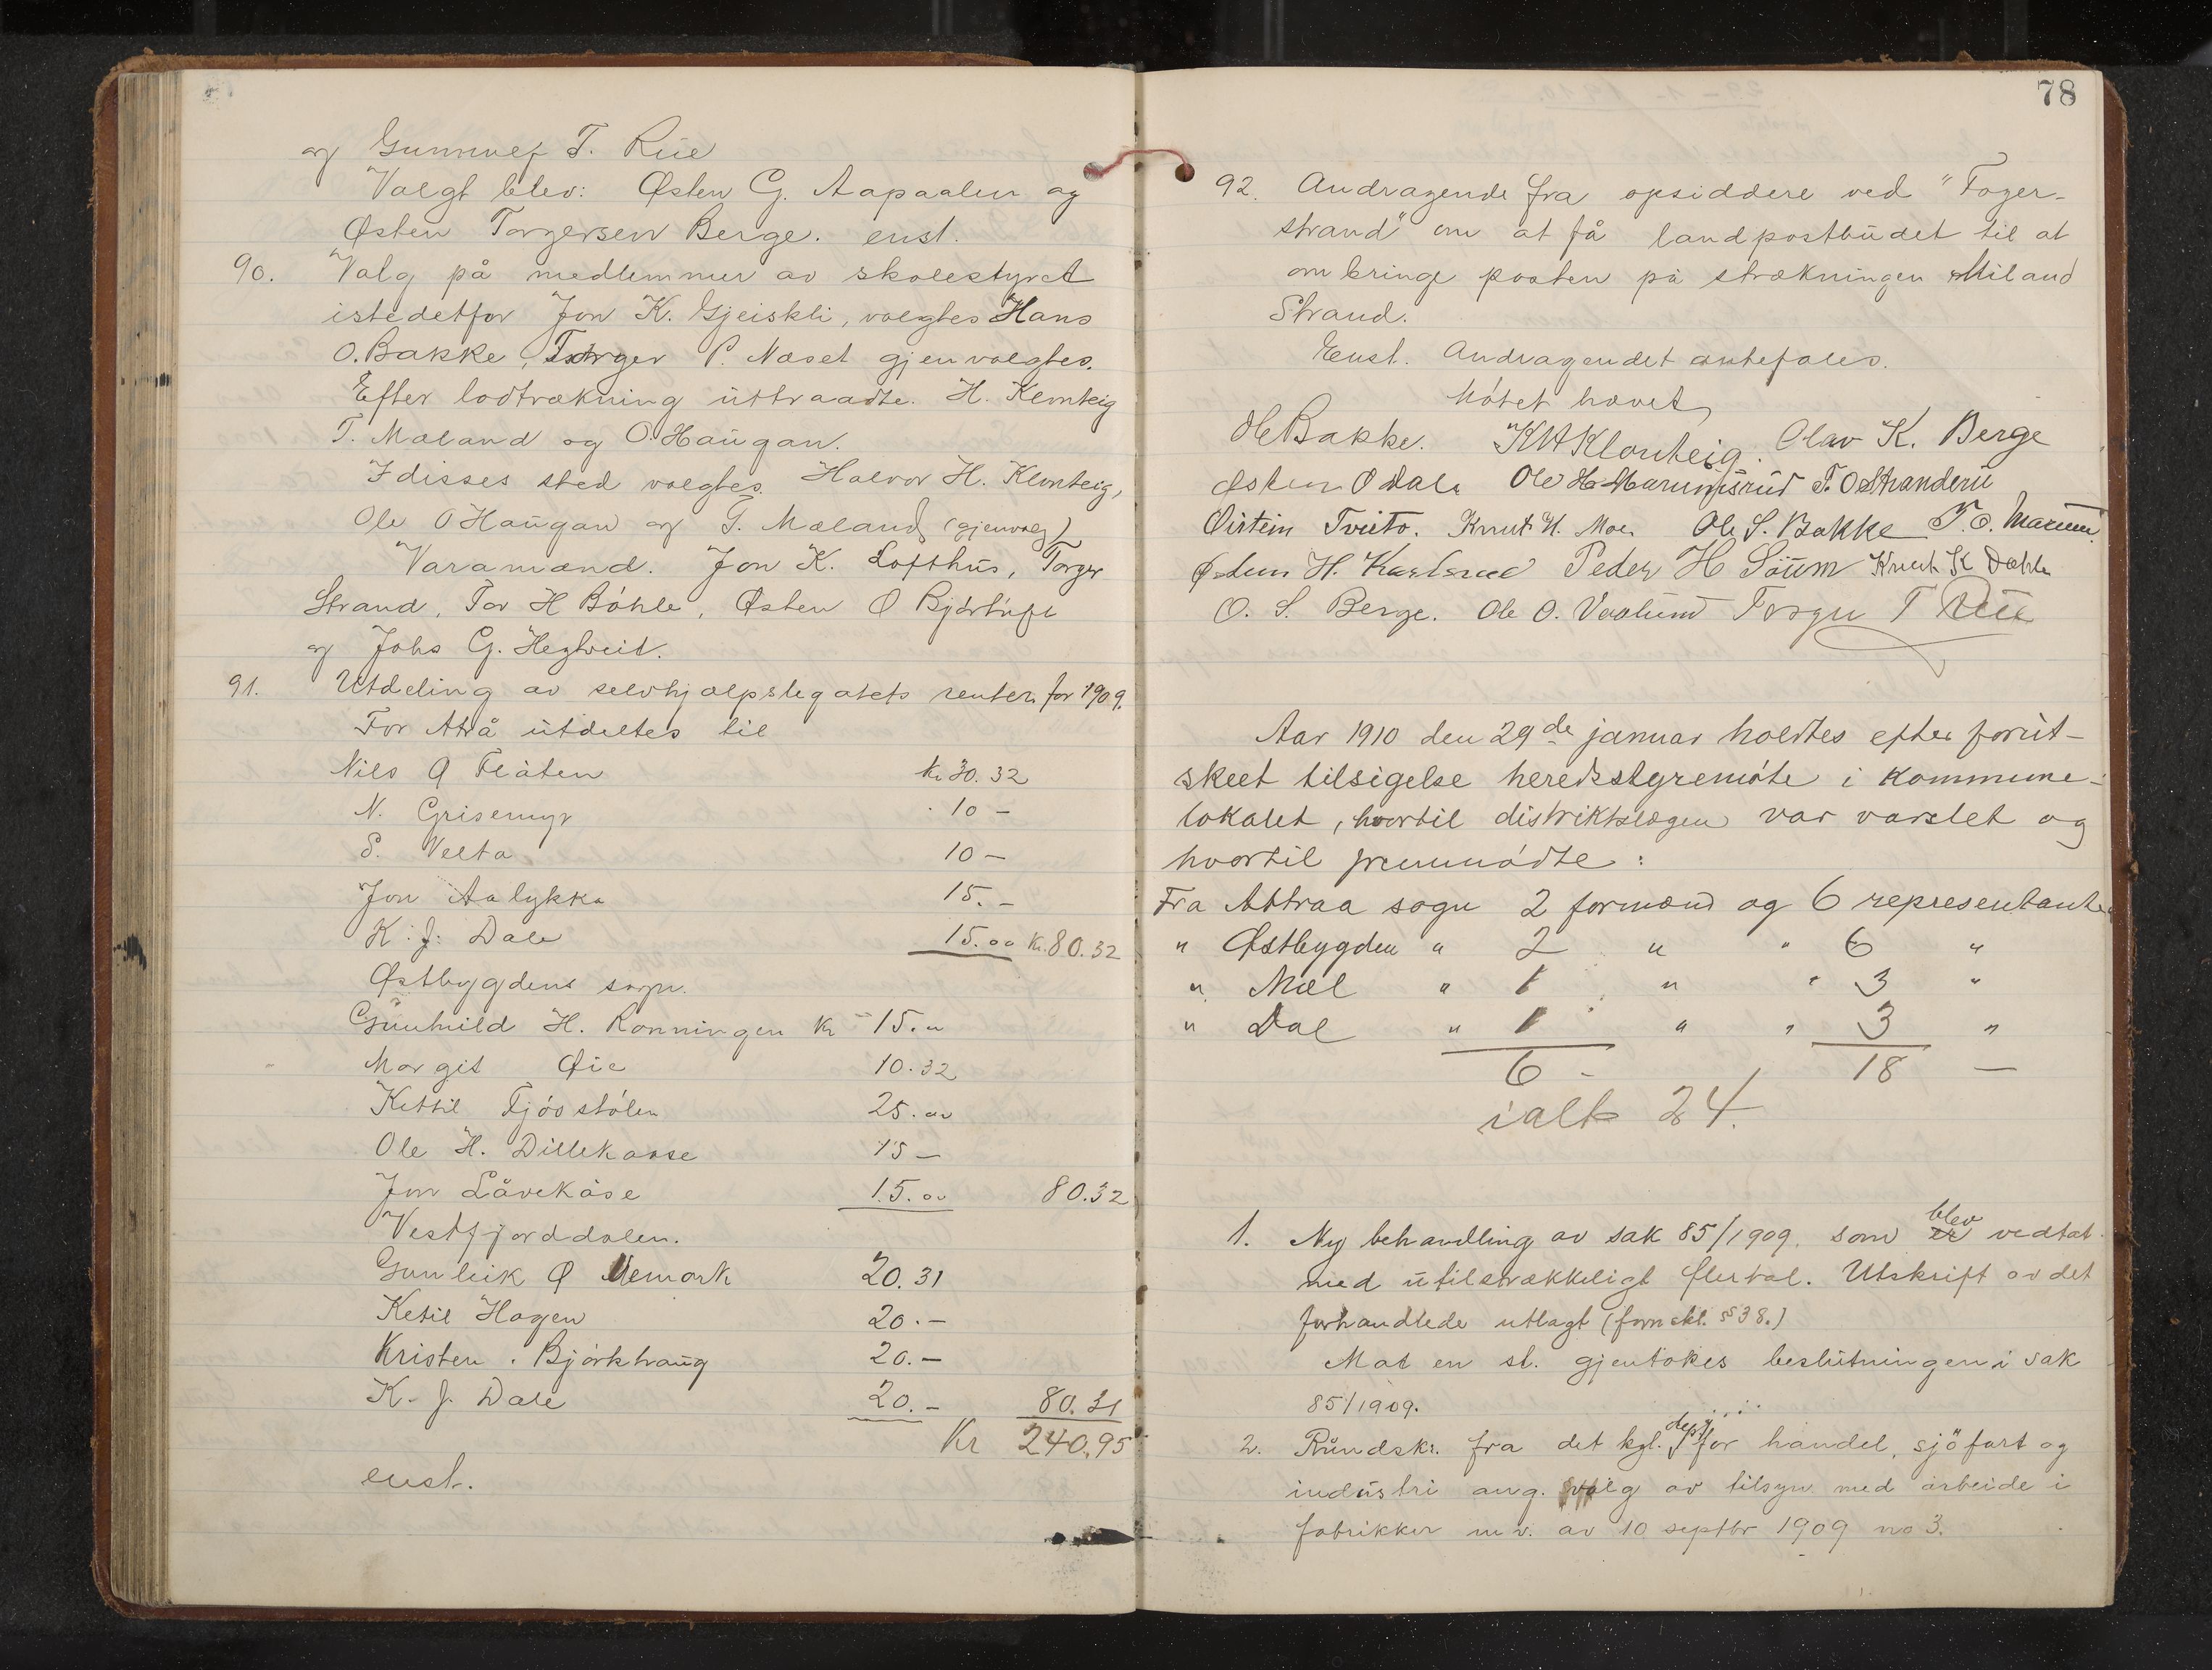 og Gunnulf T. Rue
Valgt blev: Østen G. Aapaalen og
Østen Torgersen Berge. enst.
90. Valg på medlemmer av skolestyret
istedetfor Jon K. Gjeiskli, valgtes Hans
O. Bakke, Torger P. Næset gjenvalgtes.
Efter lodtrækning uttraadte. H. Klonteig
T. Mæland og O. Haugan.
I disses sted valgtes Halvor H. Klonteig,
Ole O Haugan og T. Mæland (gjenvalg)
Varamænd. Jon K. Lofthus, Torger
Strand, Tor H Bøhle, Østen O Bjørtuft
og Johs G. Hegtveit.
91. Utdeling av selvhjælpslegatets renter for 1909.
For Atrå utdeltes til
Nils O Flåten kr 30.32
N. Grisemyr 10 –
S. Velta 10 –
Jon Aalykka 15. –
K. J. Dale 15.00 Kr. 80.32
Østbygdens sogn.
Gunhild H. Rønningen kr 15.00
Margit Øie 10.32
Kittil Fjøsstølen 25.00
Ole H. Dillekaase 15 –
Jon Låvekåse 15.00 80.32
Vestfjorddalen.
Gunleik O Uemork 20.31
Ketil Hagen 20. –
Kristen Bjørkhaug 20. –
K. J. Dale 20. – 80.31
Kr 240.95
enst.
78
92. Andragende fra opsiddere ved "Fager-
strand" om at få landpostbudet til at
ombringe posten på strækningen Miland
Strand.
Enst. Andragendet anbefales.
Møtet hævet
Ole Bakke. KHKlonteig. Olav K. Berge
Østen O Dale Ole H. Marumsrud T. O Stranderu
Øistein Tveito. Knut H. Moe. Ole S. Bakke T. O. Marum.
Østen H. Karlsrud Peder H Søum Knut K Dahle
O. S. Berge. Ole O. Vaalund Torger T Rue
Aar 1910 den 29de januar holdtes efter forut-
skeet tilsigelse heredsstyremøte i kommune-
lokalet, hvortil distriktslægen var varslet og
hvortil fremmødte:
Fra Attraa sogn 2 formænd og 6 representanter
" Østbygden " 2 " " 6 "
" Mæl " 1 " " 3 "
" Dal " 1 " " 3 "
6 – 18 —
ialt 24.
1. Ny behandling av sak 85/1909. som er blev vedtat
med utilstrækkeligt flertal. Utskrift av det
forhandlede utlagt (formskl. § 38.)
Mot en st. gjentokes beslutningen i sak
85/1909.
2. Rundskr. fra det kgl. dept. for handel, sjøfart og
industri ang. valg av tilsyn med arbeide i
fabrikker m v. av 10 septbr 1909 no 3.